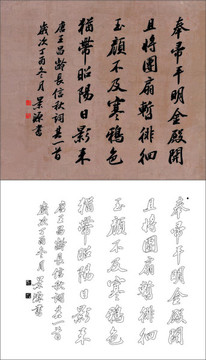 奉帚平明金殿開
且將團扇暫徘徊
玉顏不及寒鴉色
猶帶昭陽日影來
唐王昌齡長信秋詞其一首
歲次丁酉冬月景源書
奉帚平明金殿開
且將團扇暫徘徊
玉顏不及寒鴉色
猶帶昭陽日影來
唐王昌齡長信秋詞其一首
歲次丁酉冬月景源書